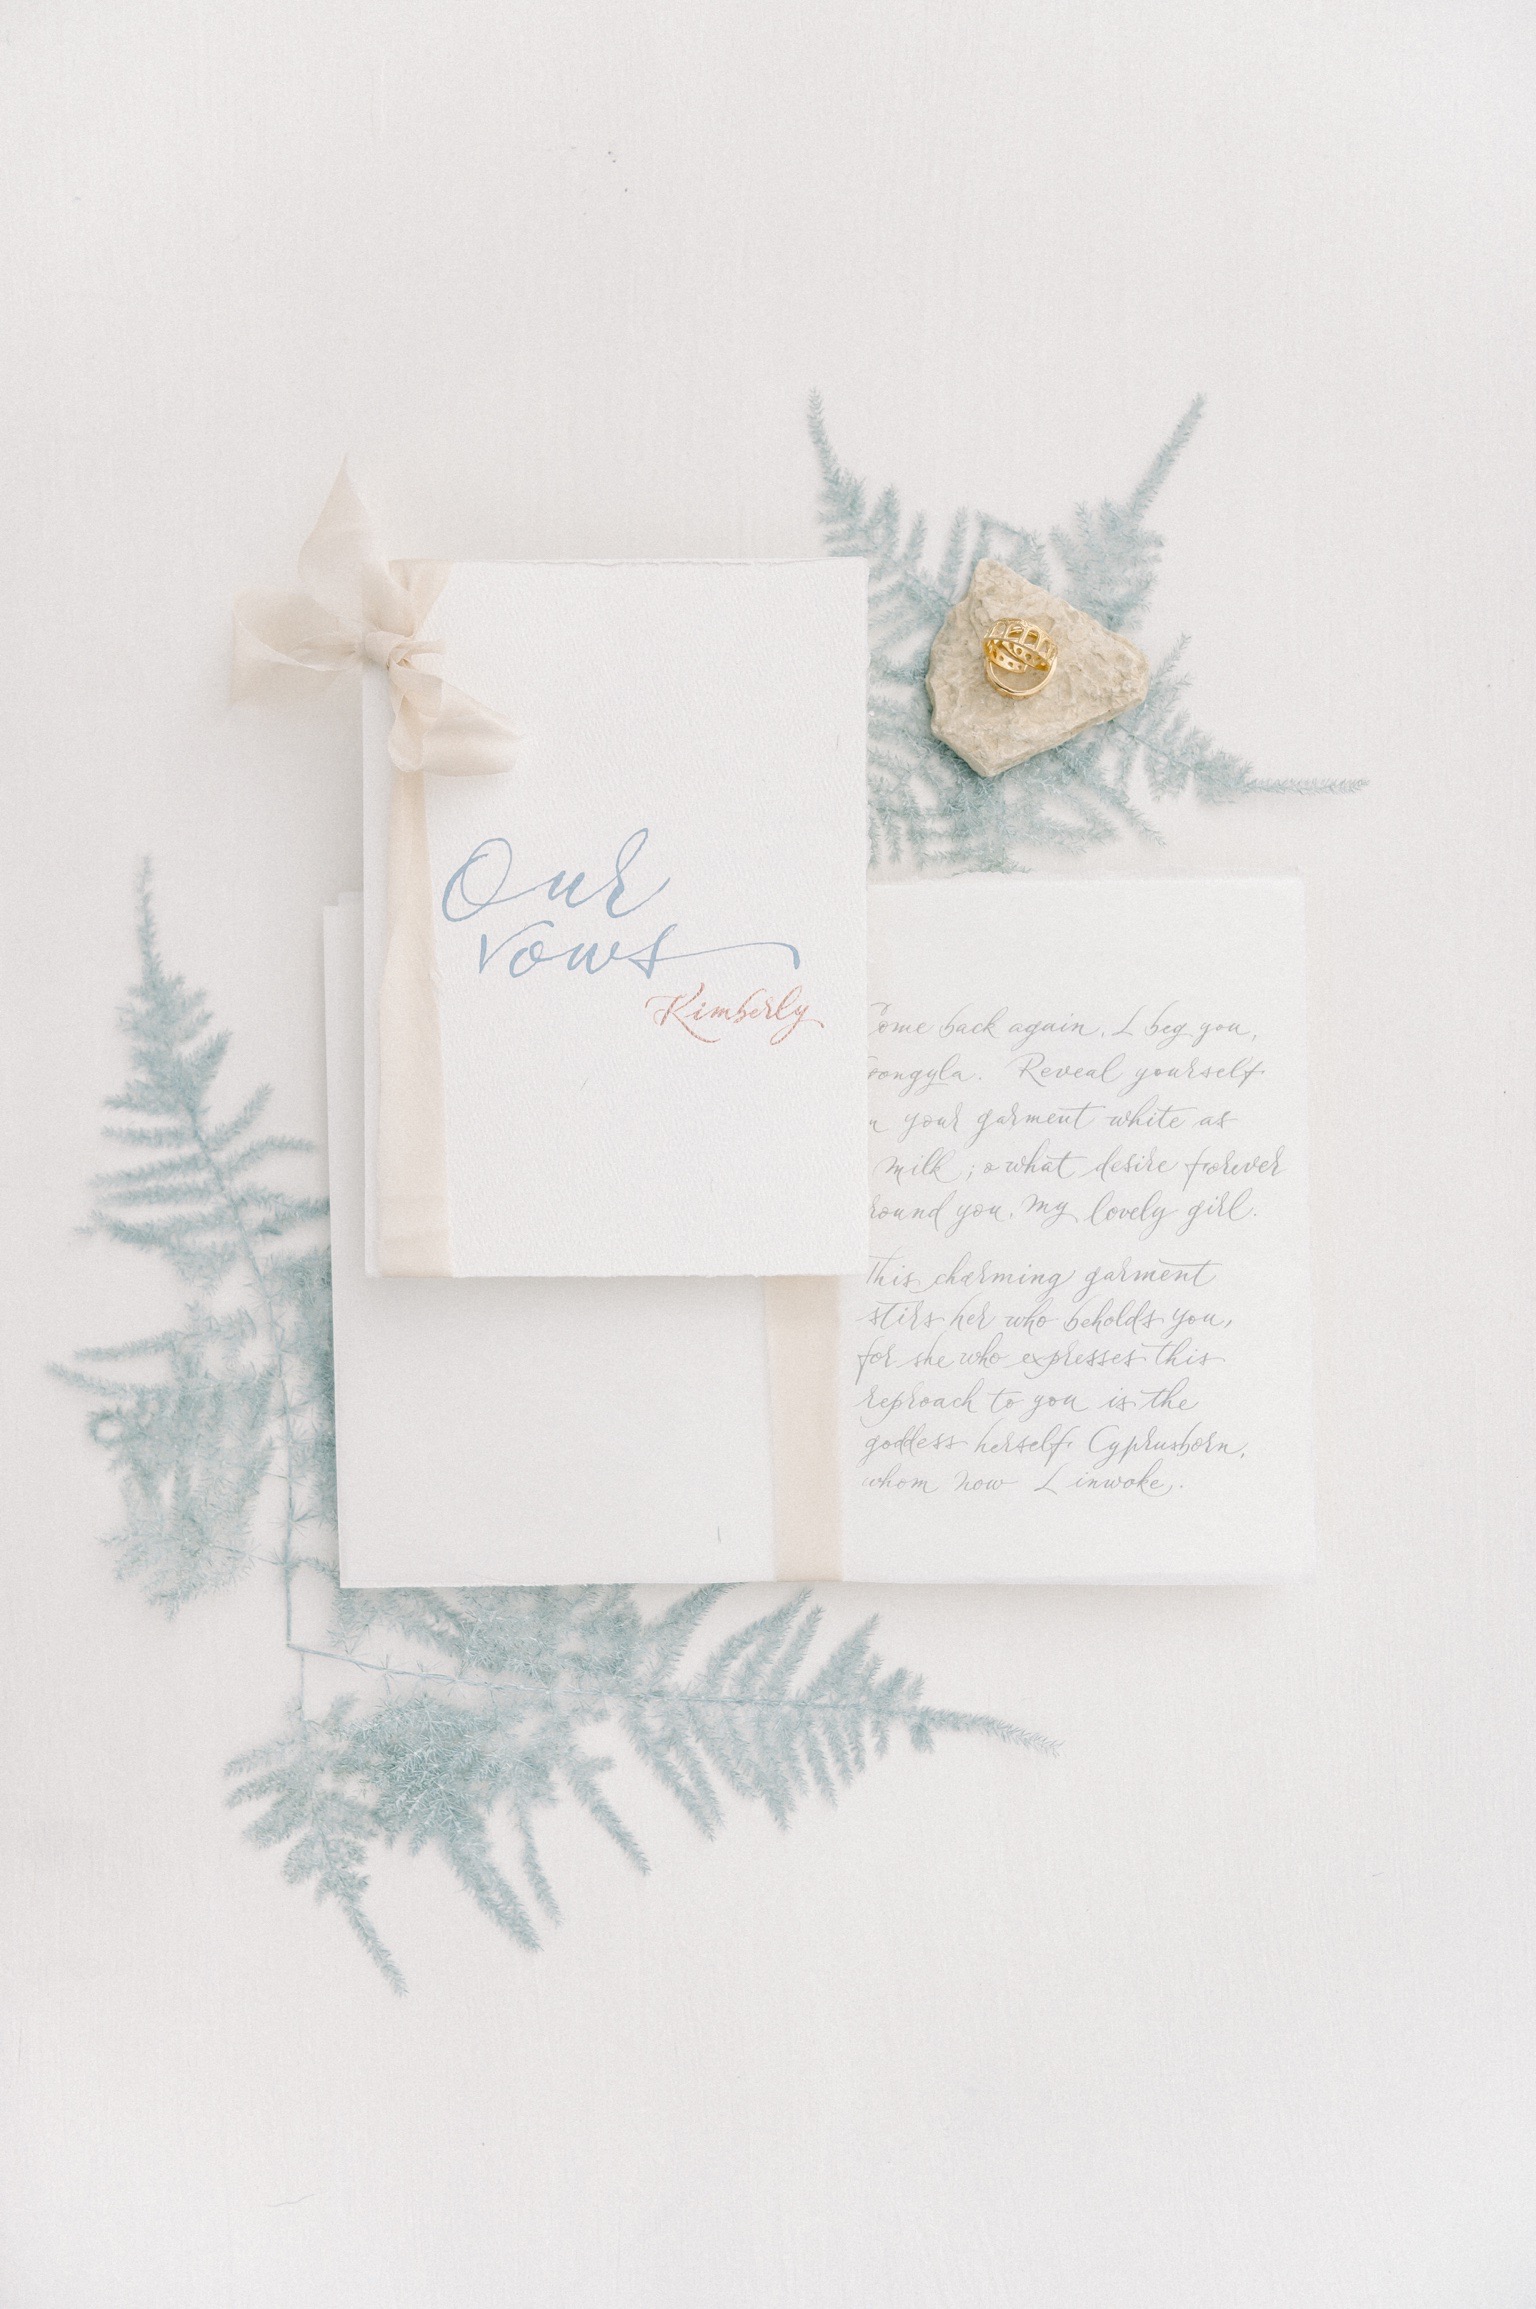 Our
vows
Kimberly
Come back again, I beg you,
oongyla. Reveal yourself
n your garment white as
milk; o what desire forever
round you, my lovely girl.
This charming garment
stirs her who beholds you,
for she who expresses this
reproach to you is the
goddess herself Cyprusborn,
whom now I invoke.